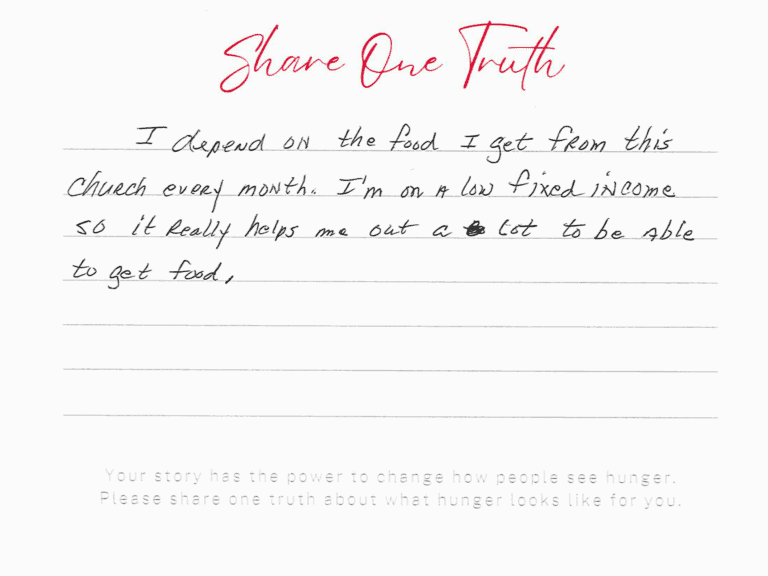 Share One Truth
I depend on the food I get from this
church every month. I'm on a low fixed income
so it really helps me out a lot to be able
to get food,
Your story has the power to change how people see hunger.
Please share one truth about what hunger looks like for you.